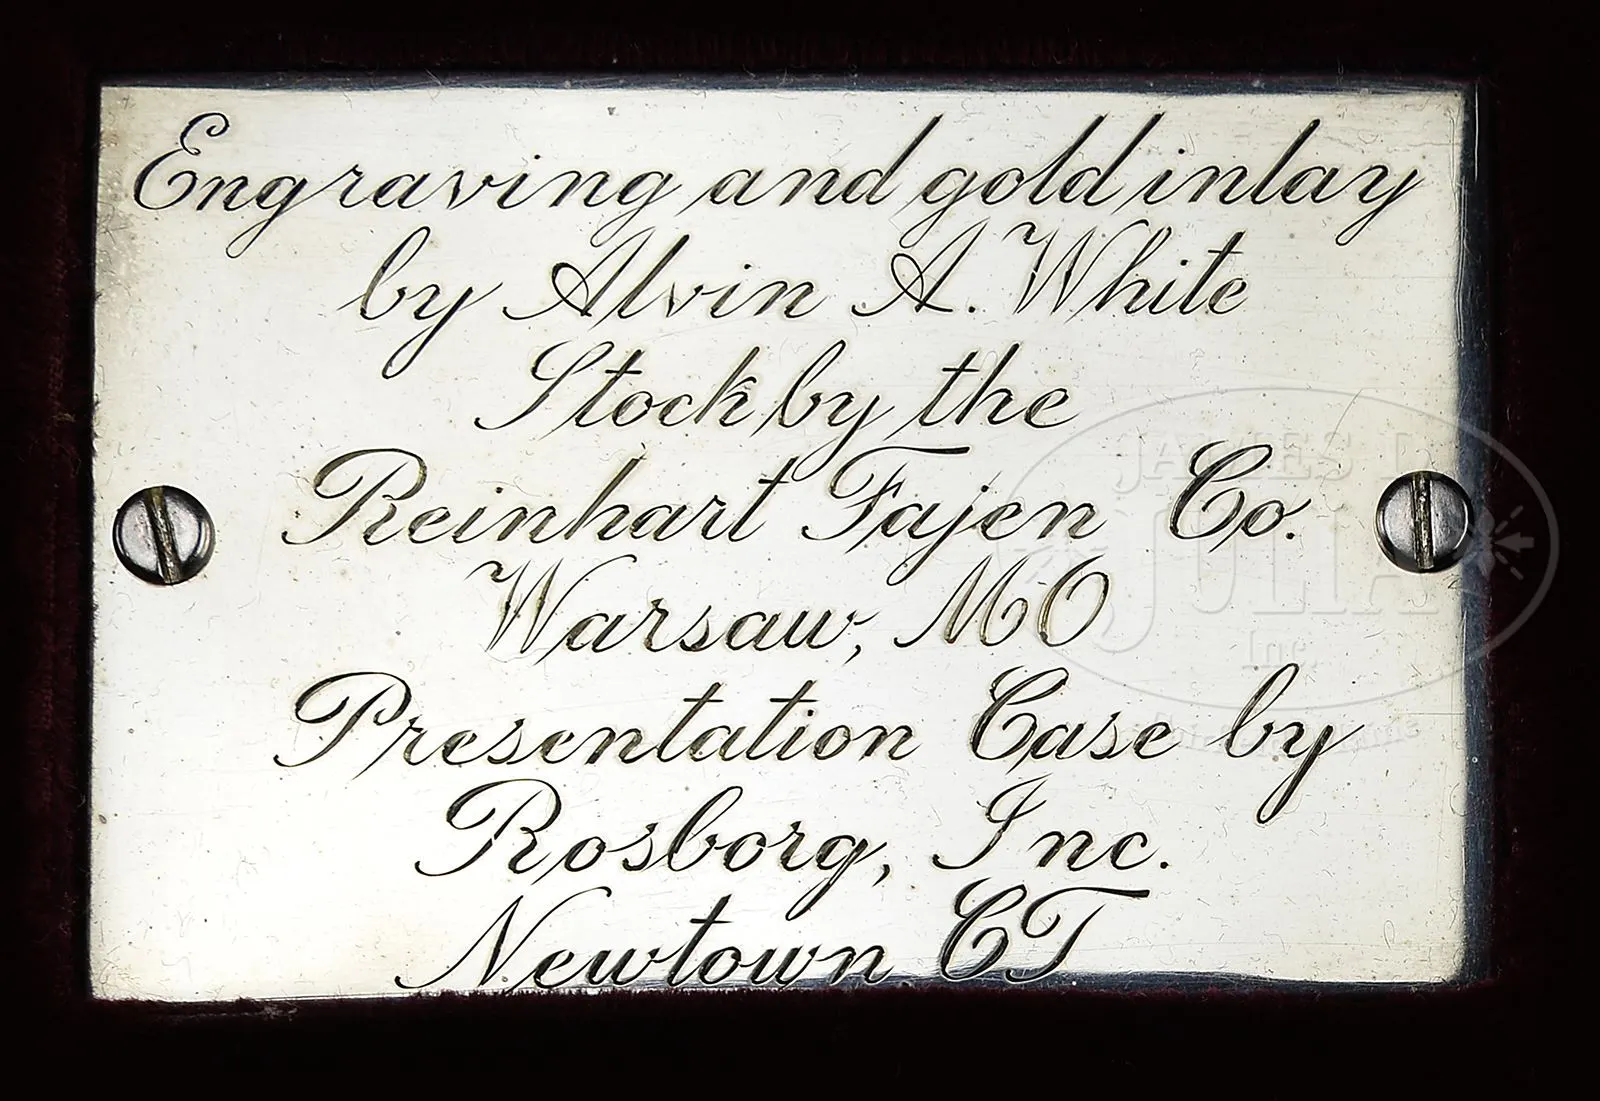 Engraving and gold inlay
by Alvin A. White
Stock by the
Reinhart Fajen Co.
Warsaw, MO
Presentation Case by
Rosborg, Inc.
Newtown CT
JAMES D.
JULIA
Inc.